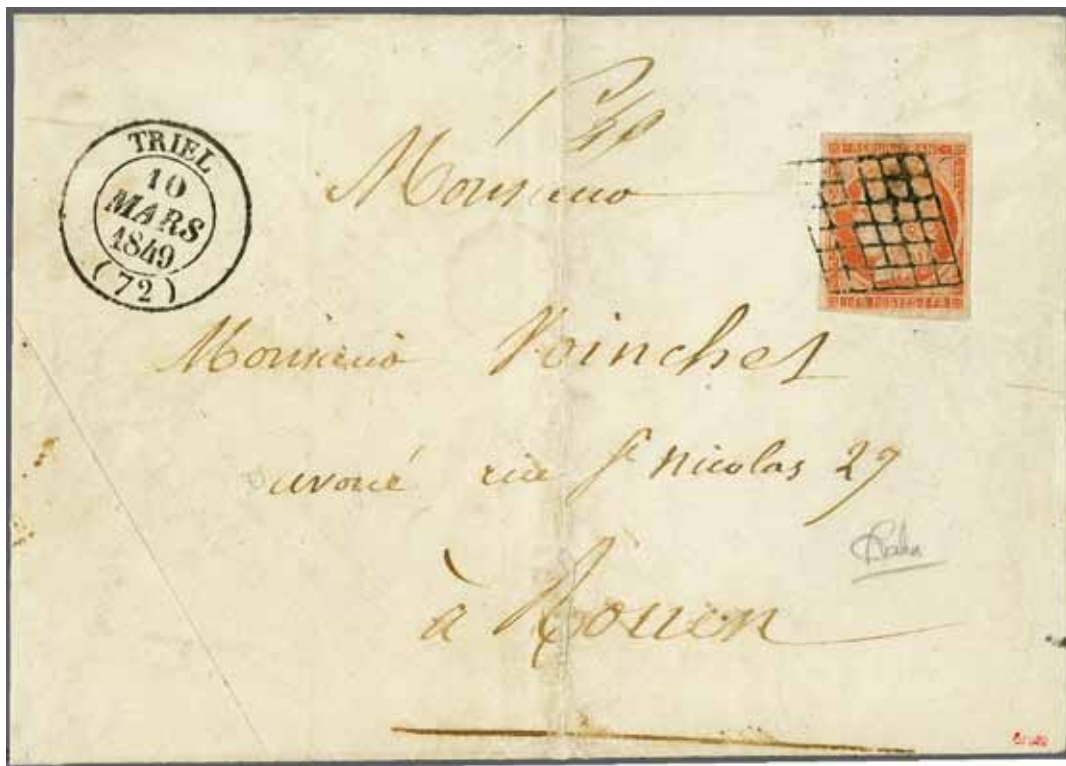 TRIEL
10
MARS
1849
(72)
Monsieur
Monsieur Poinchet
avoué rue St Nicolas 27
à Rouen